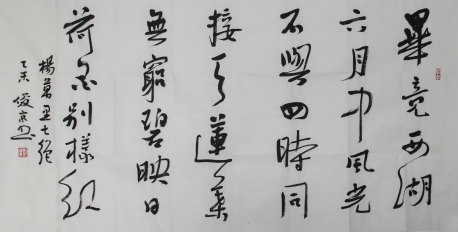 畢竟西湖
六月中風光
不與四時同
接天蓮葉
無窮碧映日
荷花別樣紅
楊萬里七絕
乙未俊京書